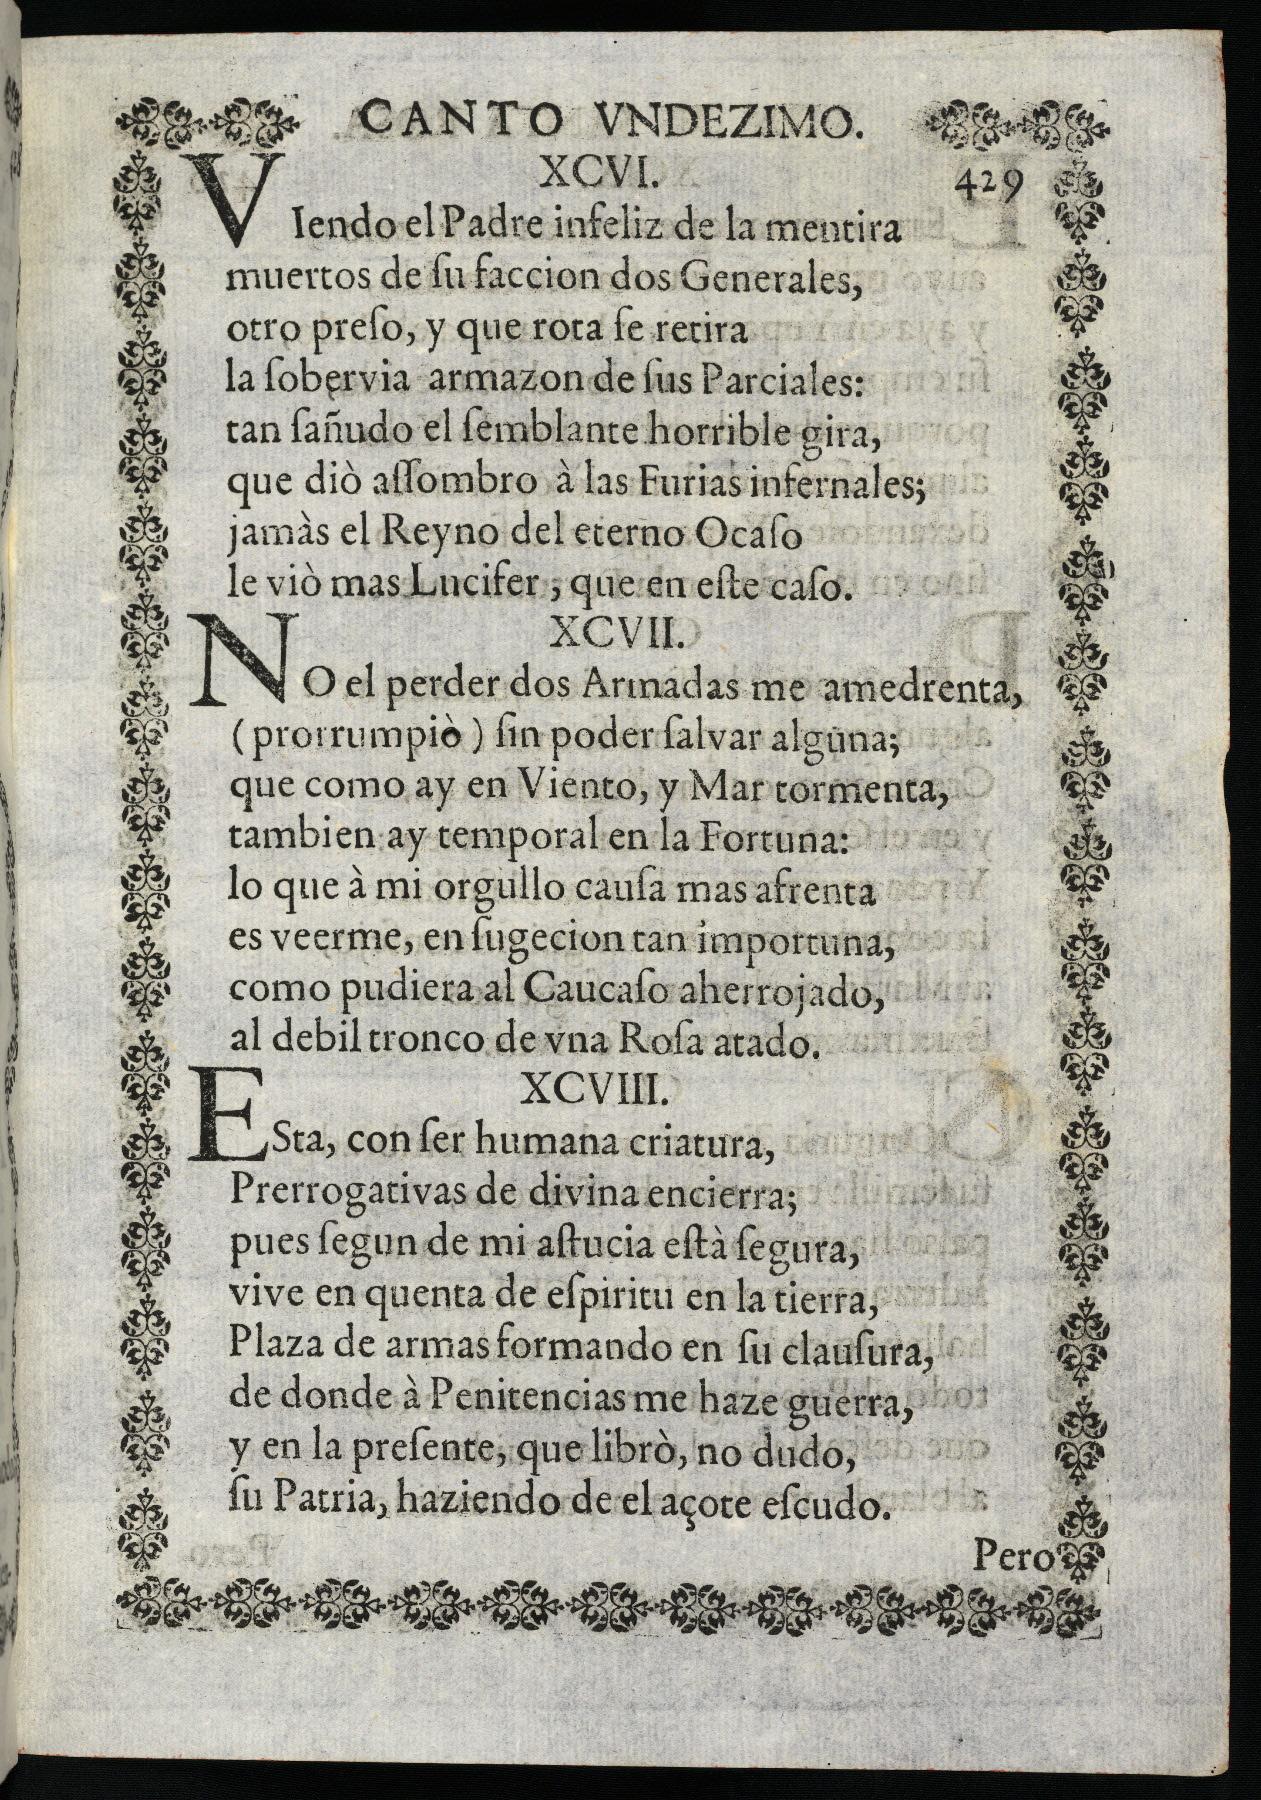 CANTO VNDEZIMO.
XCVI. 429
VIendo el Padre infeliz de la mentira
muertos de ſu faccion dos Generales,
otro preſo, y que rota ſe retira
la ſobervia armazon de ſus Parciales:
tan ſañudo el ſemblante horrible gira,
que diò aſſombro à las Furias infernales;
jamàs el Reyno del eterno Ocaſo
le viò mas Lucifer, que en eſte caſo.
XCVII.
NO el perder dos Armadas me amedrenta,
(prorrumpiò) ſin poder ſalvar alguna;
que como ay en Viento, y Mar tormenta,
tambien ay temporal en la Fortuna:
lo que à mi orgullo cauſa mas afrenta
es veerme, en ſugecion tan importuna,
como pudiera al Caucaſo aherrojado,
al debil tronco de vna Roſa atado.
XCVIII.
ESta, con ſer humana criatura,
Prerrogativas de divina encierra;
pues ſegun de mi aſtucia eſtà ſegura,
vive en quenta de eſpiritu en la tierra,
Plaza de armas formando en ſu clauſura,
de donde à Penitencias me haze guerra,
y en la preſente, que librò, no dudo,
ſu Patria, haziendo de el açote eſcudo.
Pero